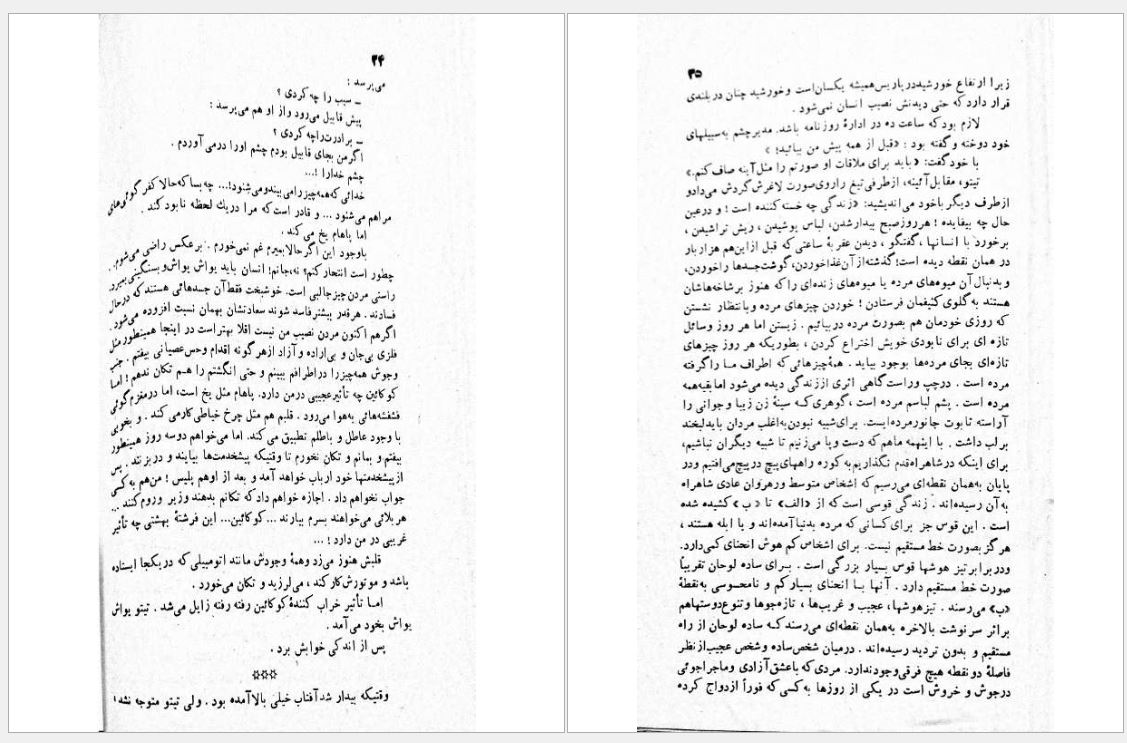 ۳۴
می‌پرسد :
ـ سیب را چه کردی ؟
پیش قابیل می‌رود و از او هم می‌پرسد :
ـ برادرت را چه کردی ؟
اگر من بجای قابیل بودم چشم او را درمی‌آوردم .
چشم خدا را !...
خدائی که همه‌چیز را می‌بیند و می‌شنود!... چه بسا که حالا کفر گوئی‌های
مرا هم می‌شنود ... و قادر است که مرا در یك لحظه نابود کند .
اما پاهام یخ می‌کند .
با وجود این اگر حالا بمیرم غم نمی‌خورم . برعکس راضی می‌شوم .
چطور است انتحار کنم؟ نه،جانم! انسان باید یواش یواش و بسنگینی بمیرد.
راستی مردن چیز جالبی است. خوشبخت فقط آن جسدهائی هستند که درحال
فسادند . هرقدر بیشتر فاسد شوند سعادتشان بهمان نسبت افزوده می‌شود.
اگر هم اکنون مردن نصیب من نیست اقلا بهتر است در اینجا همینطور مثل
فلزی بی‌جان و بی‌اراده و آزاد از هر گونه اقدام وحس عصیانی بیفتم . جنب
وجوش همه‌چیز را در اطرافم ببینم و حتی انگشتم را هم تکان ندهم ! اما
کوکائین چه تأثیرعجیبی درمن دارد. پاهام مثل یخ است، اما درمغزم گوئی
فشفشه‌هائی به‌هوا می‌رود . قلبم هم مثل چرخ خیاطی کار می کند . و بخوبی
با وجود عاطل و باطلم تطبیق می کند. اما می‌خواهم دوسه روز همینطور
بیفتم و بمانم و تکان نخورم تا وقتیکه پیشخدمت‌ها بیایند و در بزنند . پس
از پیشخدمتها خود ارباب خواهد آمد و بعد از او هم پلیس ! من هم به کسی
جواب نخواهم داد . اجازه خواهم داد که تکانم بدهند وزیر و روم کنند ...
هر بلائی می‌خواهند بسرم بیارند ... کوکائین... این فرشتهٔ بهشتی چه تأثیر
غریبی در من دارد ! ...
قلبش هنوز می‌زد وهمهٔ وجودش مانند اتومبیلی که در یکجا ایستاده
باشد و موتورش کار کند ، می‌لرزید و تکان می‌خورد .
اما تأثیر خراب کنندهٔ کوکائین رفته رفته زایل می‌شد . تیتو یواش
یواش بخود می‌آمد .
پس از اندکی خوابش برد .
✡✡✡
وقتیکه بیدار شد آفتاب خیلی بالا آمده بود . ولی تیتو متوجه نشد،
۳۵
زیرا ارتفاع خورشید در پاریس همیشه یکسان است و خورشید چنان در بلندی
قرار دارد که حتی دیدنش نصیب انسان نمی‌شود .
لازم بود که ساعت ده در ادارهٔ روزنامه باشد. مدیر چشم به‌سبیلهای
خود دوخته و گفته بود : «قبل از همه پیش من بیائید! »
با خود گفت: «باید برای ملاقات او صورتم را مثل آینه صاف کنم.»
تیتو، مقابل آئینه، از طرفی تیغ را روی صورت لاغرش گردش می‌داد و
از طرف دیگر باخود می‌اندیشید: «زندگی چه خسته کننده است ! و درعین
حال چه بیفایده ! هر روز صبح بیدار شدن، لباس پوشیدن ، ریش تراشیدن ،
برخورد با انسانها ، گفتگو ، دیدن عقربهٔ ساعتی که قبل از این هم هزار بار
در همان نقطه دیده است! گذشته‌از آن غذا خوردن، گوشت جسدها را خوردن،
و بدنبال آن میوه‌های مرده یا میوه‌های زنده‌ای را که هنوز بر شاخه‌هاشان
هستند به‌گلوی کثیفمان فرستادن ! خوردن چیزهای مرده و بانتظار نشستن
که روزی خودمان هم بصورت مرده در بیائیم . زیستن اما هر روز وسائل
تازه ای برای نابودی خویش اختراع کردن ، بطوریکه هر روز چیزهای
تازه‌ای بجای مرده‌ها بوجود بیاید . همهٔ چیزهائی که اطراف ما را گرفته
مرده است . درچپ وراست گاهی اثری از زندگی دیده می‌شود اما بقیه‌همه
مرده است . پشم لباسم مرده است ، گوهری که سینهٔ زن زیبا و جوانی را
آراسته تابوت جانور مرده‌ایست. برای شبیه نبودن به‌اغلب مردان باید لبخند
برلب داشت . با اینهمه ما هم که دست وپا می‌زنیم تا شبیه دیگران نباشیم،
برای اینکه در شاهراه قدم نگذاریم به‌کوره راههای پیچ در پیچ می‌افتیم ودر
پایان به‌همان نقطه‌ای می‌رسیم که اشخاص متوسط ورهروان عادی شاهراه
به آن رسیده‌اند . زندگی قوسی است که از «الف» تا « ب » کشیده شده
است . این قوس جز برای کسانی که مرده بدنیا آمده‌اند و یا ابله هستند ،
هرگز بصورت خط مستقیم نیست. برای اشخاص کم هوش انحنای کمی دارد.
ودر برابر تیز هوشها قوس بسیار بزرگی است . برای ساده لوحان تقریباً
صورت خط مستقیم دارد . آنها با انحنای بسیار کم و نامحسوسی به‌نقطهٔ
«ب» می‌رسند . تیزهوشها، عجیب و غریب‌ها ، تازه‌جوها و تنوع دوستها هم
براثر سرنوشت بالاخره به‌همان نقطه‌ای می‌رسند که ساده لوحان از راه
مستقیم و بدون تردید رسیده‌اند . درمیان شخص ساده و شخص عجیب از نظر
فاصلهٔ دو نقطه هیچ فرقی وجود ندارد. مردی که باعشق آزادی و ماجراجوئی
درجوش و خروش است در یکی از روزها به‌کسی که فوراً ازدواج کرده